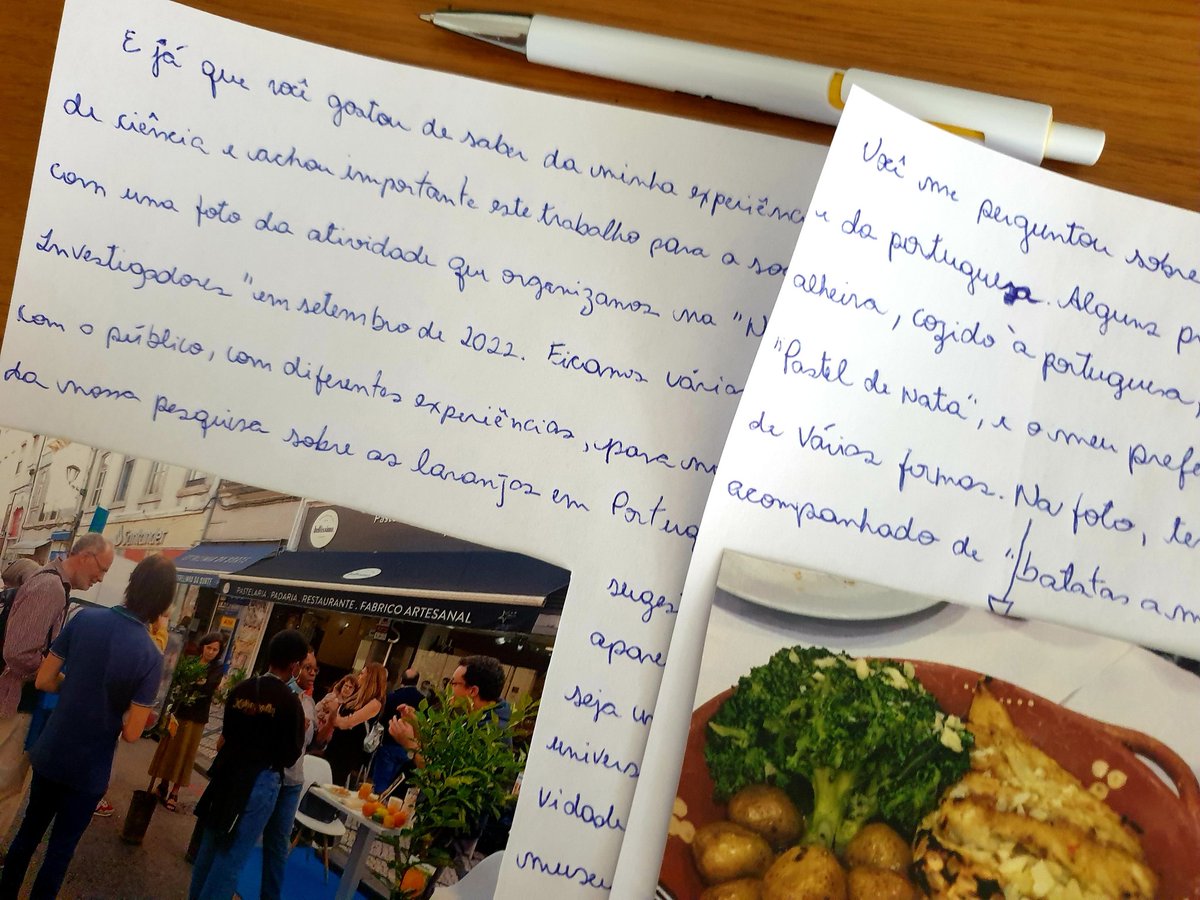 E já que você gostou de saber da minha experiênc
de ciência e achou importante este trabalho para a so
com uma foto da atividade que organizamos na "N
Investigadores" em setembro de 2022. Ficamos vária
com o público, com diferentes experiências, para m
da nossa pesquisa sobre as laranjas em Portug
suges
apare
seja um
univers
vidade
museu
Você me perguntou sobre
e da portuguesa. Alguns pr
alheira, cozido à portuguesa,
"Pastel de Nata", e o meu prefe
de várias formas. Na foto, te
acompanhado de "batatas a m
Santander
bellissimo
PASTELARIA . PADARIA . RESTAURANTE . FABRICO ARTESANAL